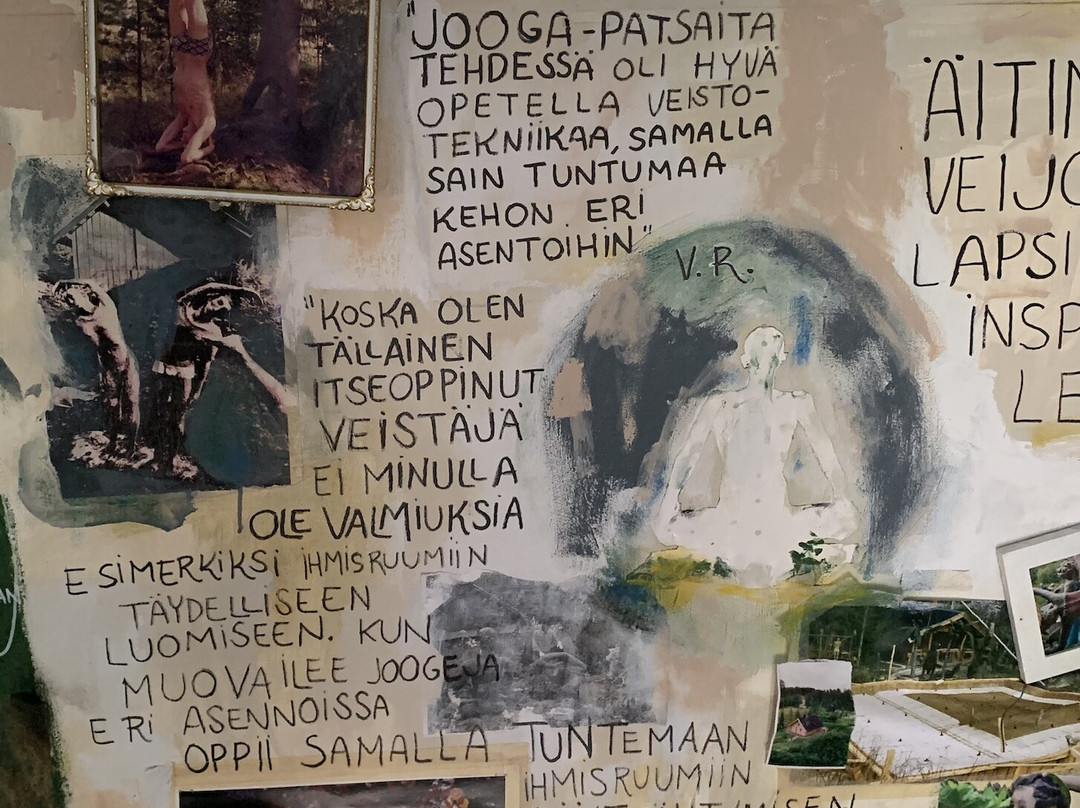 "JOOGA-PATSAITA
TEHDESSÄ OLI HYVÄ
OPETELLA VEISTO-
TEKNIIKAA, SAMALLA
SAIN TUNTUMAA
KEHON ERI
ASENTOIHIN"
V.R.
"KOSKA OLEN
TÄLLAINEN
ITSEOPPINUT
VEISTÄJÄ
EI MINULLA
OLE VALMIUKSIA
ESIMERKIKSI IHMISRUUMIIN
TÄYDELLISEEN
LUOMISEEN. KUN
MUOVAILEE JOOGEJA
ERI ASENNOISSA
OPPII SAMALLA TUNTEMAAN
IHMISRUUMIIN
ÄITIN
VEIJO
LAPSI
INSP
LE